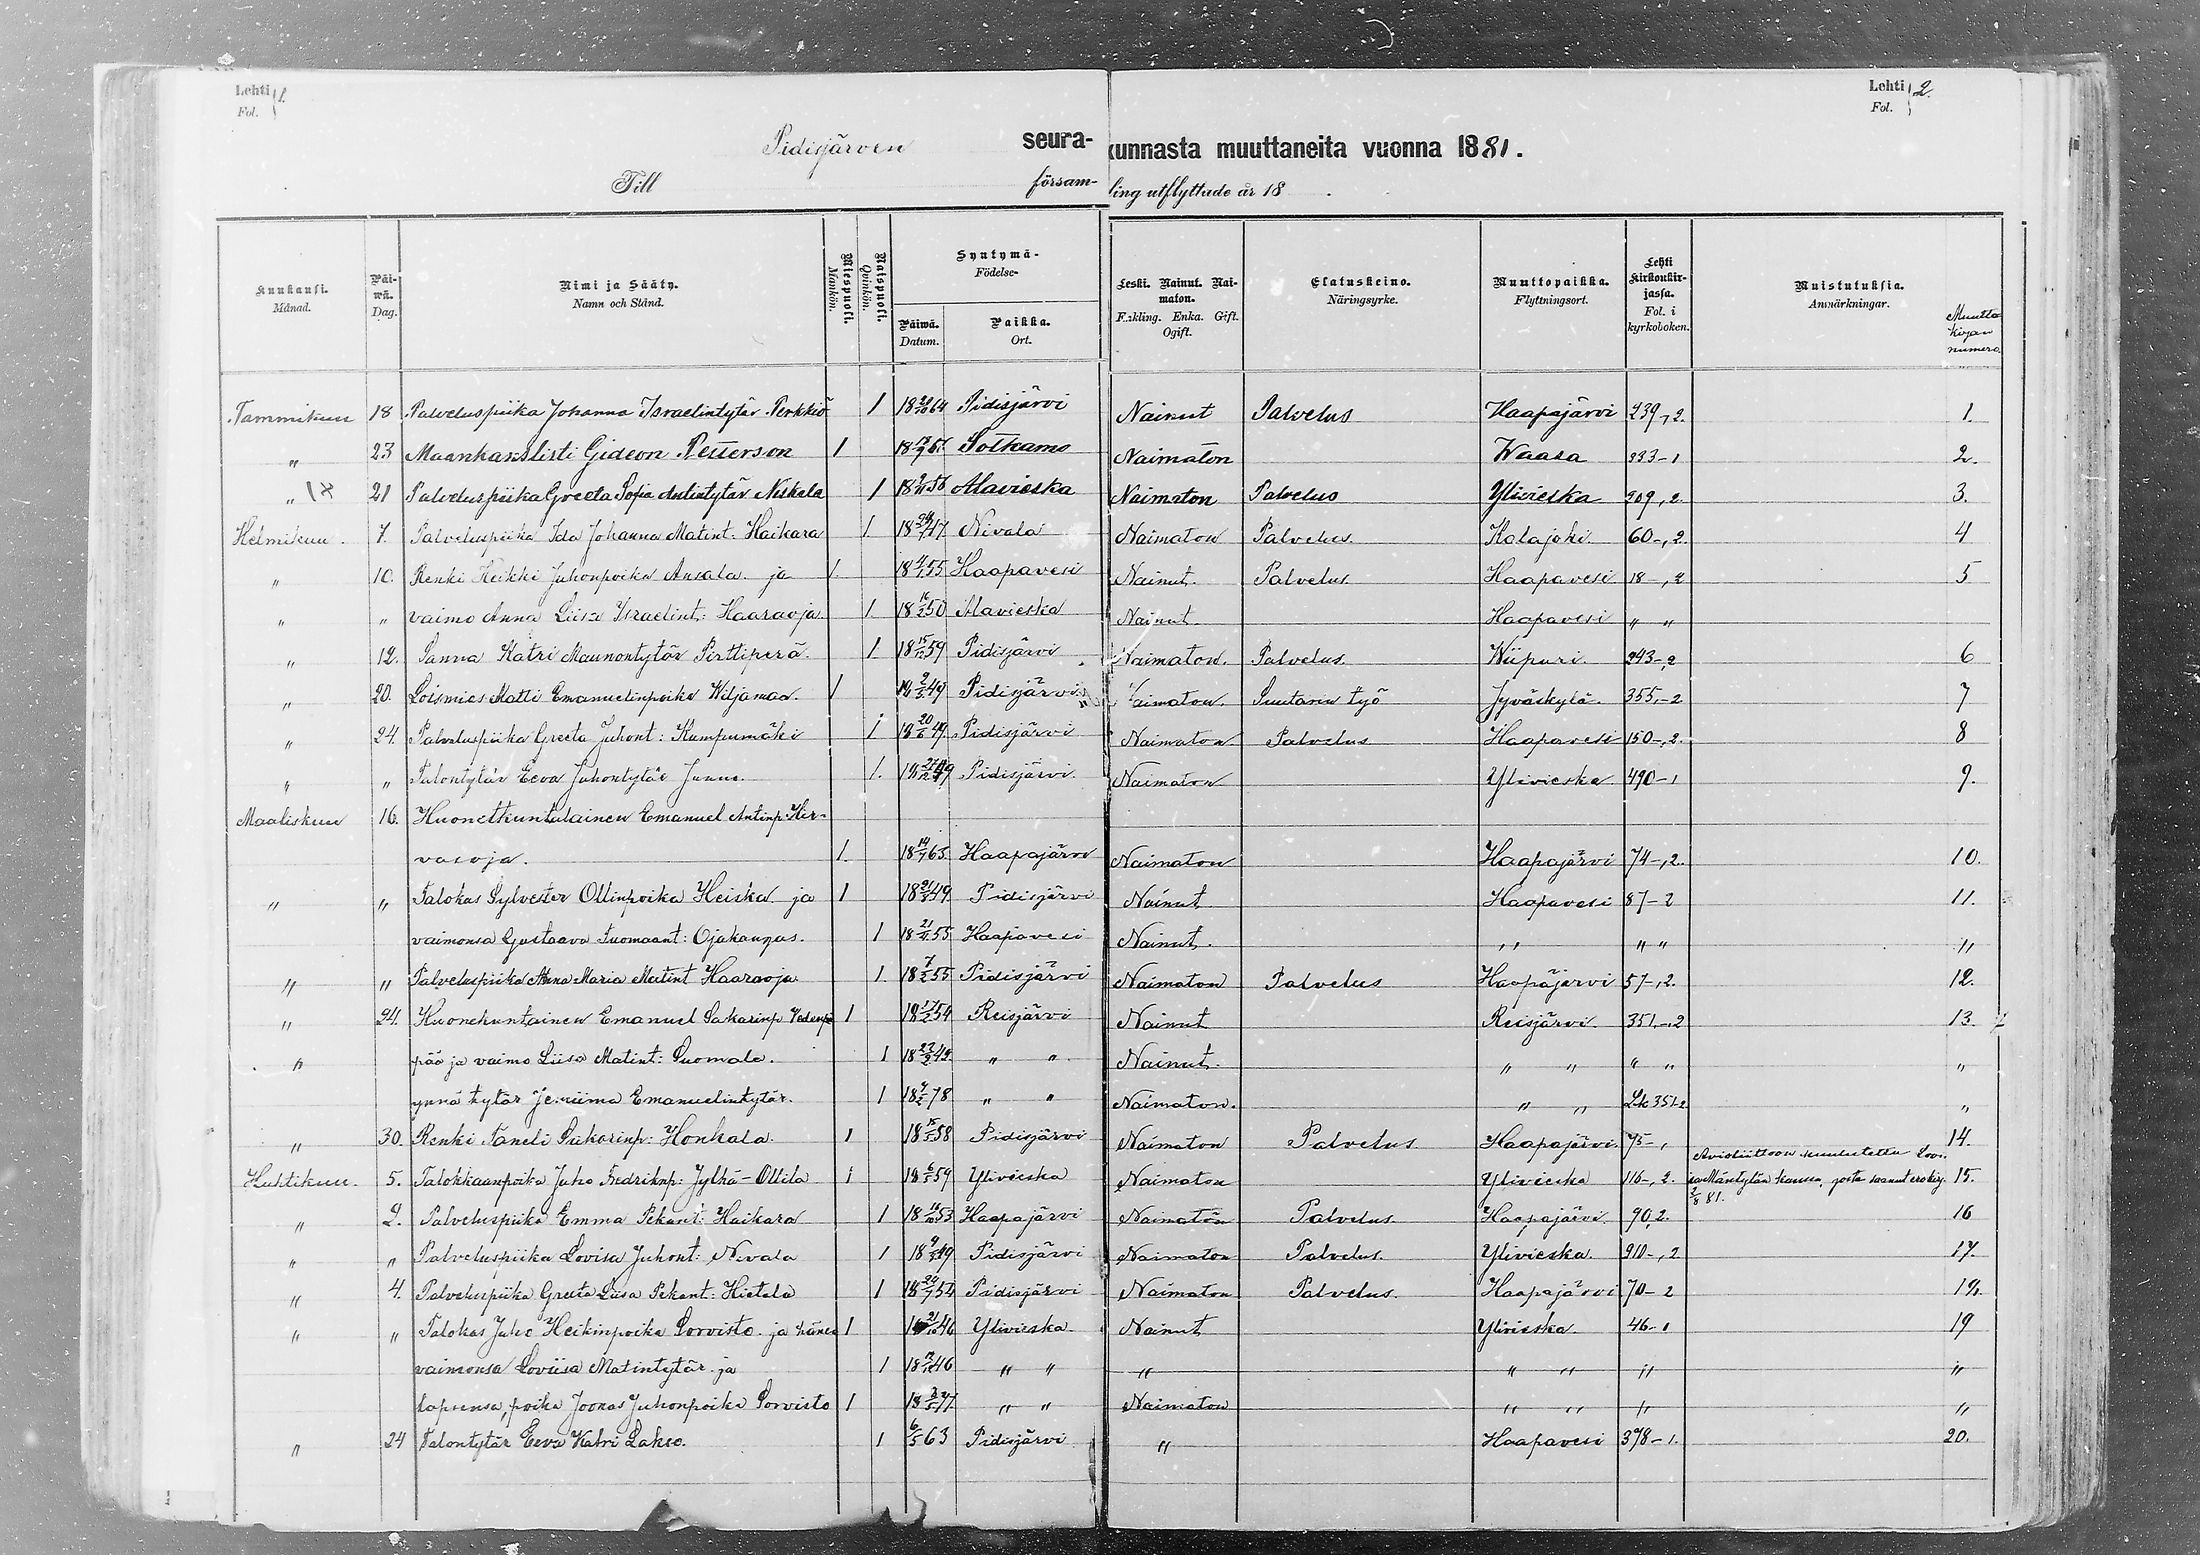 Lehti 1.
Fol.
Lehti 2.
Fol.
Pidisjärven seurakunnasta muuttaneita vuonna 1881.
Till försam-ling utflyttade år 18 .
Kuukausi. Månad. Päiwä. Dag. Nimi ja Sääty. Namn och Stånd. Miespuoli. Mankön. Naispuoli. Quinkön. Syntymä- Födelse- Päiwä. Datum. Paikka. Ort. Leski. Nainut. Naimaton. Enkling. Enka. Gift. Ogift. Elatuskeino. Näringsyrke. Muuttopaikka. Flyttningsort. Lehti kirkonkirjassa. Fol. i kyrkoboken. Muistutuksia. Anmärkningar. Muuttokirjan numero.
Tammikuu 18 Palveluspiika Johanna Israelintytär Perkkiö 1 18 64 Pidisjärvi Nainut Palvelus Haapajärvi 239,2. 1.
" 23 Maankanslisti Gideon Petterson 1 Sotkamo Naimaton Waasa 233-1 2.
" 18 21 Palveluspiika Greeta Sofia Antintytär Niskala 1 18 56 Alavieska Naimaton Palvelus Ylivieska 209,2. 3.
Helmikuu. 7. Palveluspiika Ida Johanna Matint: Haikara 1. 18 47 Nivala Naimaton Palvelus. Kalajoki. 60-,2. 4
" 10. Renki Heikki Juhonpoika Ansala. ja 1. 18 55 Haapavesi Nainut. Palvelus. Haapavesi 18-,2 5
" " vaimo Anna Liisa Israelint: Haaraoja 1. 18 50 Alavieska Nainut. Haapavesi " "
" 12. Sanna Katri Maunontytär Pirttiperä. 1. 18 59 Pidisjärvi Naimaton. Palvelus. Wiipuri. 243-,2 6
" 20. Loismies Matti Emanuelinpoika Wiljamaa. 1 18 49 Pidisjärvi Naimaton. Suutarin työ Jyväskylä. 355,-2 7
" 24. Palveluspiika Greeta Juhont: Kumpumäki 1 18 20/6 49 Pidisjärvi Naimaton Palvelus Haapavesi 150-,2. 8
" " Talontytär Eeva Juhontytär Junno. 1. Pidisjärvi. Naimaton Ylivieska 490-1 9.
Maaliskuu 16. Huonetkuntalainen Emanuel Antinp: Hir-
vasoja. 1. 18 63 Haapajärvi Naimaton Haapajärvi 74-,2. 10.
" " Talokas Sylvester Ollinpoika Heiska. ja 1 18 49 Pidisjärvi Nainut Haapavesi 87-2 11.
vaimonsa Gustaava Tuomaant: Ojakangas. 1 18 55 Haapavesi Nainut. " " " "
" " Palveluspiika Anna Maria Matint Haaraoja 1. 18 55 Pidisjärvi Naimaton Palvelus Haapajärvi 57-,2. 12.
" 24. Huonekuntainen Emanuel Sakarinp Vedenpä 1 18 54 Reisjärvi Nainut Reisjärvi. 351,-,2 13.
" pää ja vaimo Liisa Matint: Suomala. 1 18 " " Nainut. " " " " "
ynnä tytär Jemiima Emanuelintytär. 1 18 78 " " Naimaton. " " Lk 351-2 "
" 30. Renki Taneli Sakarinp: Honkala. 1 18 58 Pidisjärvi Naimaton Palvelus Haapajärvi. 75-, 14.
Huhtikuu. 5. Talokkaanpoika Juho Fredrikinp: Jylhä-Ollila 1 18 59 Ylivieska Naimaton Ylivieska 116-,2. Avioliittoon kuulutettu Loviisa Mäntytän kanssa, josta saanut erokirj. 2/8 81. 15.
" 2. Palveluspiika Emma Pekant: Haikara 1 18 53 Haapajärvi Naimaton Palvelus Haapajärvi. 90,2. 16
" " Palveluspiika Lovisa Juhont: Nivala 1 18 49 Pidisjärvi Naimaton Palvelus. Ylivieska. 210-,2 17.
" 4. Palveluspiika Greeta Liisa Pekant: Hietala 1 18 54 Pidisjärvi Naimaton Palvelus. Haapajärvi 70-2 18.
" " Talokas Juho Heikinpoika Sorvisto ja hänen 1 46 Ylivieska. Nainut Ylivieska. 46-1 19
vaimonsa Loviisa Matintytär ja 1 18 46 " " " " " " "
lapsensa, poika Joonas Juhonpoika Sorvisto 1 18 77 " " Naimaton " " " "
" 24 Talontytär Eeva Katri Lakso. 1 6/5 63 Pidisjärvi " Haapavesi 378-1. 20.